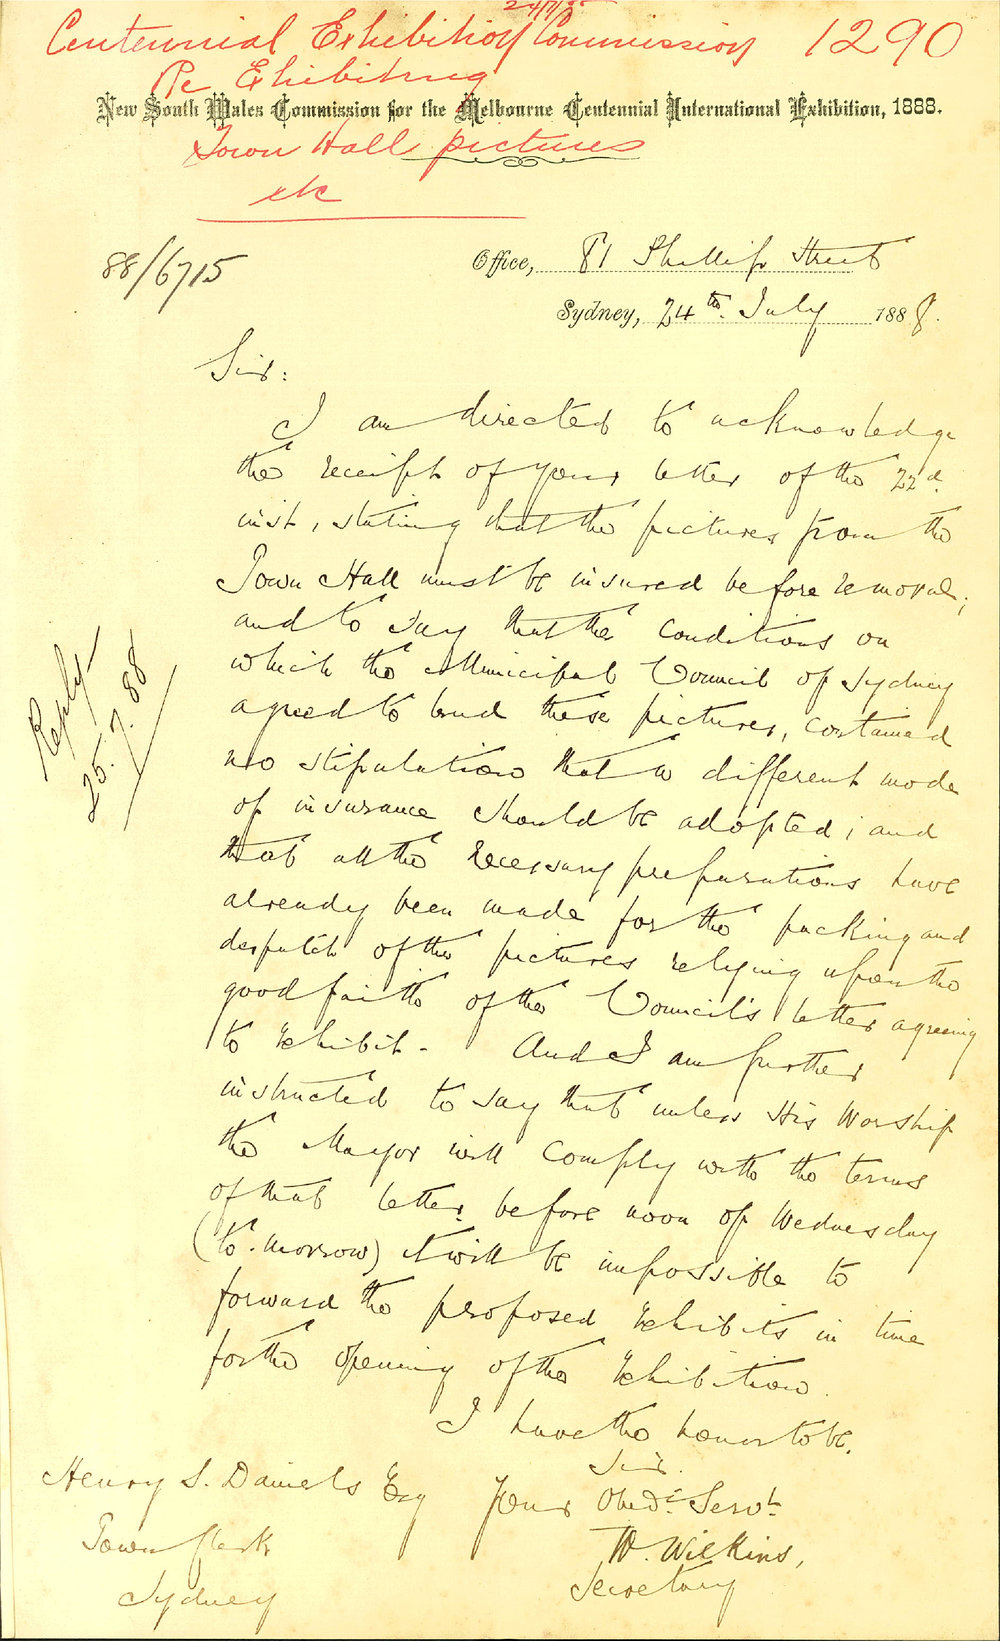 24/7/88
Centennial Exhibition Commission 1290
Re Exhibiting
New South Wales Commission for the Melbourne Centennial International Exhibition, 1888.
Town Hall pictures
etc
88/6715
Office, 81 Phillip Street
Sydney, 24th July 1888.
Sir:
I am directed to acknowledge
the receipt of your letter of the 22d
inst, stating that the pictures from the
Town Hall must be insured before removal;
and to say that the conditions on
which the Municipal Council of Sydney
agreed to lend these pictures, contained
no stipulation that a different mode
of insurance should be adopted; and
that all the necessary preparations have
already been made for the packing and
despatch of the pictures relying upon the
good faith of the Council's letter agreeing
to exhibit. And I am further
instructed to say that unless His Worship
the Mayor will comply with the terms
of that letter before noon of Wednesday
(to-morrow) it will be impossible to
forward the proposed exhibits in time
for the opening of the Exhibition.
I have the honor to be,
Sir.
Your Obedt Servt
W. Wilkins,
Secretary
Henry S. Daniels Esq
Town Clerk
Sydney
Reply
25.7.88